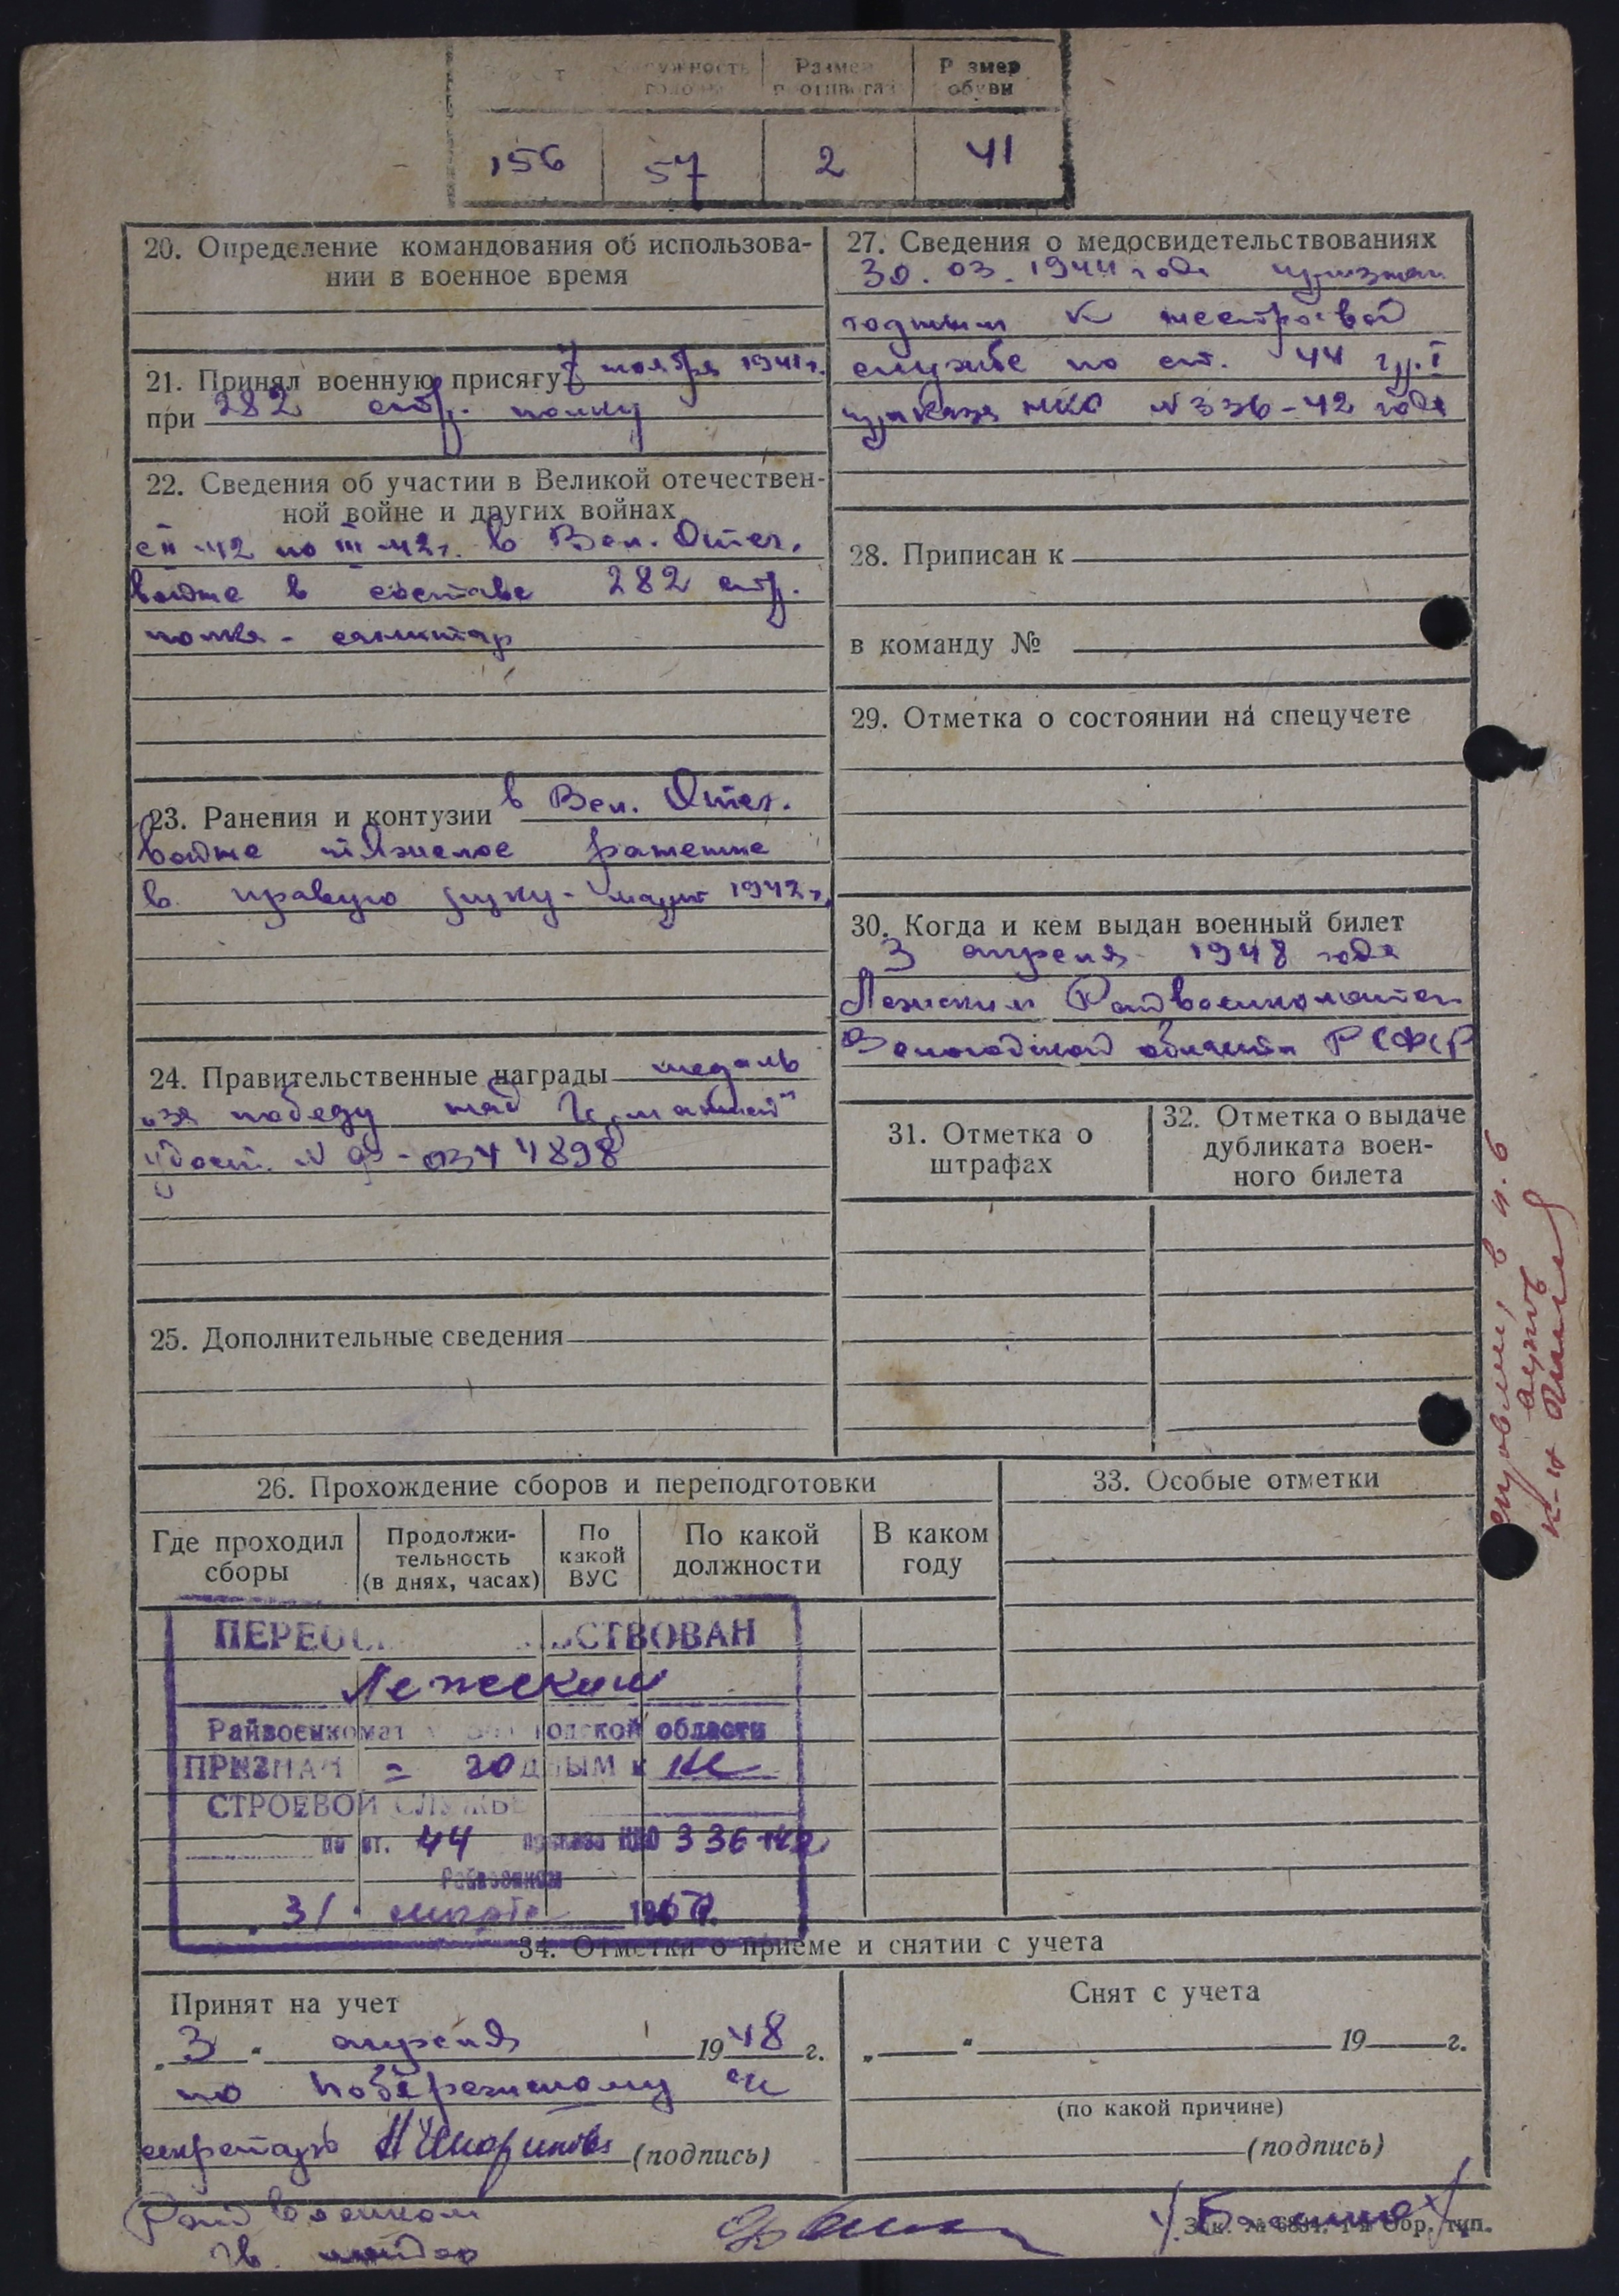 Размер Размер
обуви
156 57 2 41
20. Определение командования об использова-
нии в военное время
21. Принял военную присягу 7 ноября 1941 г.
при 282 стр. полку
22. Сведения об участии в Великой отечествен-
ной войне и других войнах
с II-42 по III-42г. в Вел. Отеч.
войне в составе 282 стр.
полка - санитар
23. Ранения и контузии в Вел. Отеч.
войне тяжелое ранение
в правую руку - март 1942г.
24. Правительственные награды медаль
"за победу над Германией"
удост. N
25. Дополнительные сведения
27. Сведения о медосвидетельствованиях
30. 03. 1944 года признан
годным к нестроевой
службе по ст. 44 гр. I
приказа НКО N 336-42 года
28. Приписан к
в команду №
29. Отметка о состоянии на спецучете
30. Когда и кем выдан военный билет
3 апреля 1948 года
Лежским Райвоенкоматом
Вологодской области РСФСР
31. Отметка о
штрафах
32. Отметка о выдаче
дубликата воен-
ного билета
в п. б
26. Прохождение сборов и переподготовки
Где проходил
сборы
Продолжи-
тельность
(в днях, часах)
По
какой
ВУС
По какой
должности
В каком
году
33. Особые отметки
ПЕРЕОСВИДЕТЕЛЬСТВОВАН
Лежским
Райвоенкомат Вологодской области
ПРИЗНАН = годным к не
СТРОЕВОЙ СЛУЖБЕ
по ст. 44 приказа НКО 336-42
Райвоенком
31 марта
34. Отметки о приеме и снятии с учета
Принят на учет
„3" апреля 1948 г.
по Побережскому с/с
секретарь (подпись)
Снят с учета
„ " 19 г.
(по какой причине)
(подпись)
Райвоенком
гв. майор
Зак. № 1-я Обр. тип.